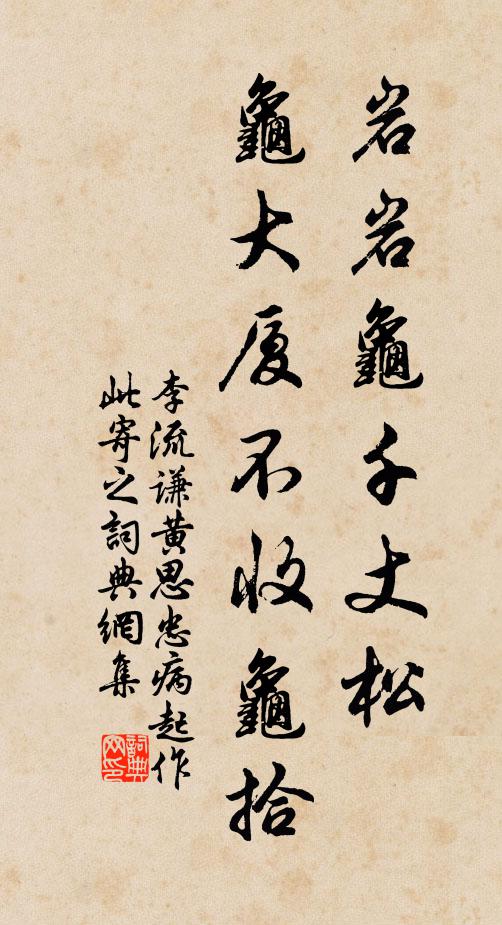 岩岩龜千丈松
龜大厦不收龜拾
李流谦黄思忠病起作
此寄之詞典網集
詞典網印